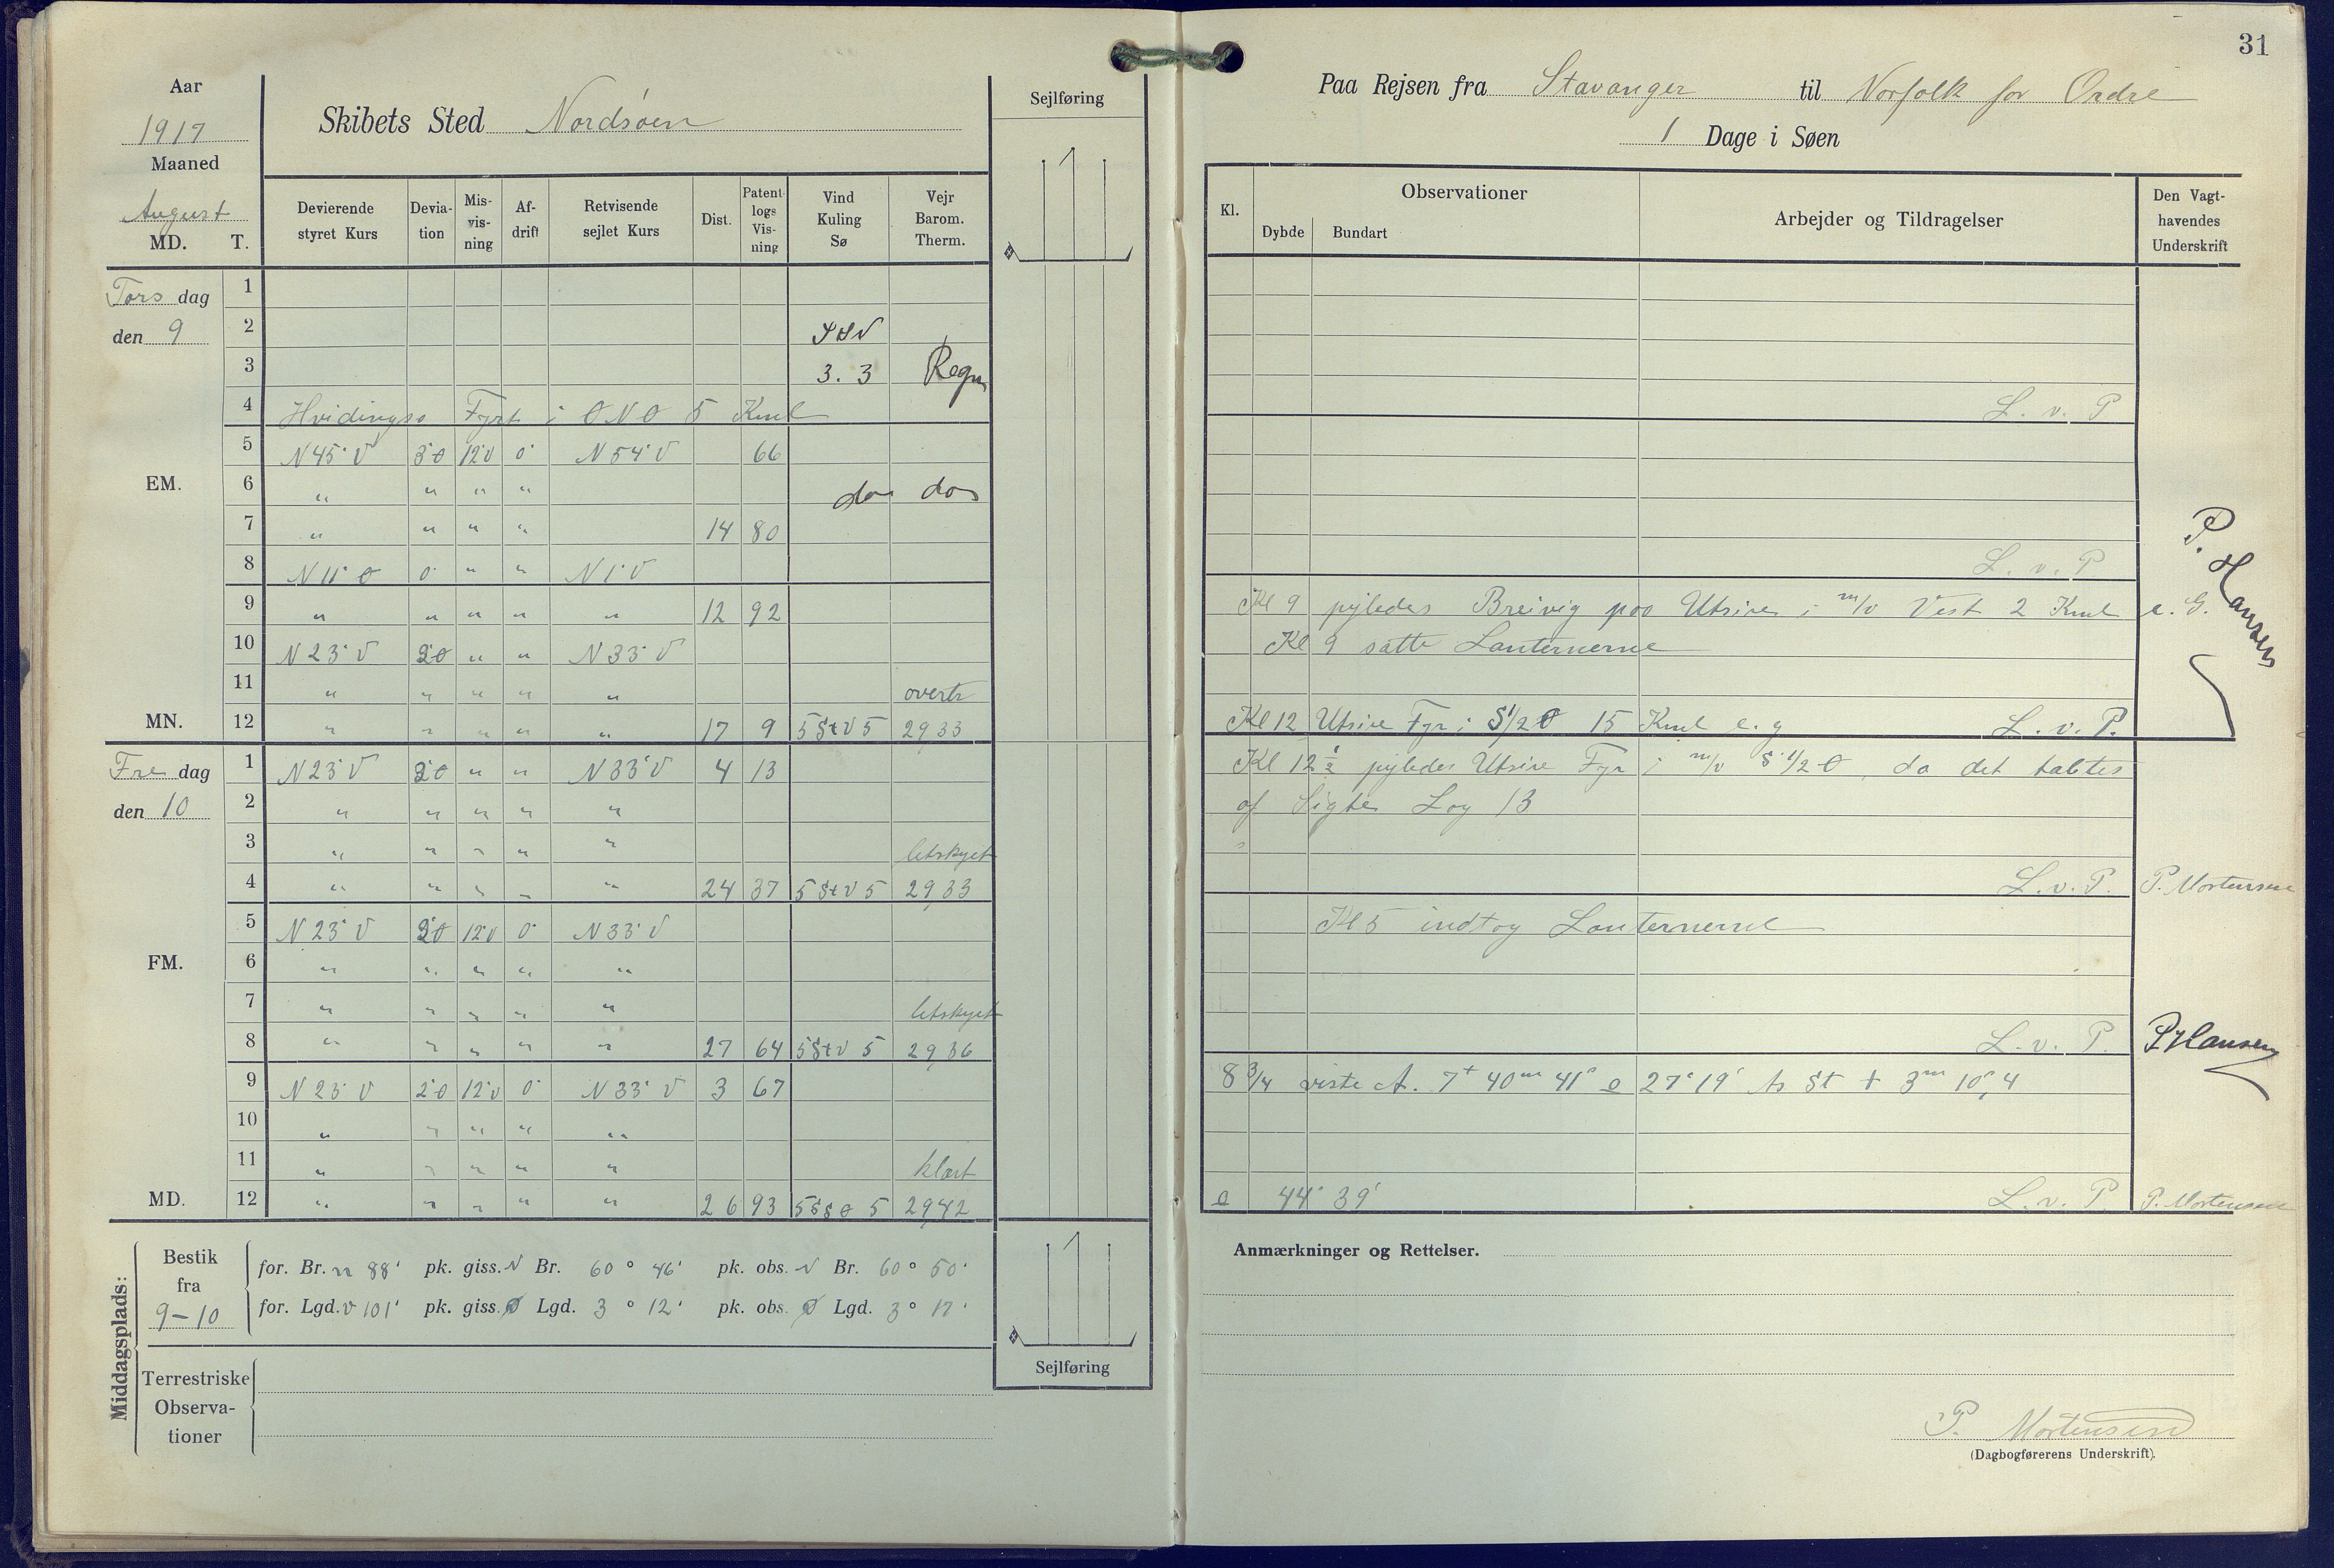 Aar
1917
Maaned
August
MD. T.
Skibets Sted Nordsøen
Sejlføring
Devierende styret Kurs
Deviation
Misvisning
Afdrift
Retvisende sejlet Kurs
Dist.
Patentlogs Visning
Vind Kuling Sø
Vejr Barom. Therm.
Torsdag
den 9
1
2 SSV
3 3. 3 Regn
4 Hvidingsø Fyrt i ONO 5 Kml
5 N 45° V 3°Ø 12°V 0° N 54° V 66
EM.
6 " " " " do do
7 " " " " 14 80
8 N 11° Ø 0° " " N 1° V
9 " " " " " 12 92
10 N 23° V 2°Ø " " N 33° V
11 " " " " " overtr
MN.
12 " " " " " 17 9 5 StV 5 29,33
Fredag
den 10
1 N 23° V 2°Ø " " N 33° V 4 13
2 " " " " "
3 " " " " " letskyet
4 " " " " " 24 37 5 StV 5 29,33
5 N 23° V 2°Ø 12°V 0° N 33° V
FM.
6 " " " " "
7 " " " " " letskyet
8 " " " " " 27 64 5 StV 5 29,36
9 N 23° V 2°Ø 12°V 0° N 33° V 3 67
10 " " " " "
11 " " " " " klart
MD.
12 " " " " " 26 93 5 SSØ 5 29,42
Middagsplads:
Bestik fra 9-10
for. Br. n 88' pk. giss. N Br. 60° 46' pk. obs. N Br. 60° 50'
for. Lgd. v 101' pk. giss. Ø Lgd. 3° 12' pk. obs. Ø Lgd. 3° 17'
Terrestriske Observationer
Sejlføring
31
Paa Rejsen fra Stavanger til Norfolk for Ordre
1 Dage i Søen
Kl.
Observationer
Dybde Bundart
Arbejder og Tildragelser
Den Vagthavendes Underskrift
L. v. P
L. v. P.
P. Hansen
Kl 9 pejledes Breivig paa Utsire i m/v Vest 2 Kml e. G.
Kl 9 satte Lanternerne
Kl 12 Utsire Fyr i S 1/2 Ø 15 Kml e. g L. v. P.
Kl 12 1/2 pejledes Utsire Fyr i m/v S 1/2 Ø, da det tabtes
af Sigte Log 13
L. v. P. P. Mortensen
Kl 5 indtog Lanternerne
L. v. P. P Hansen
8 3/4 viste A. 7 t 40 m 41 s 27° 19' St + 3 m 10s,4
44° 39' L. v. P. P. Mortensen
Anmærkninger og Rettelser.
P. Mortensen
(Dagbogførerens Underskrift).